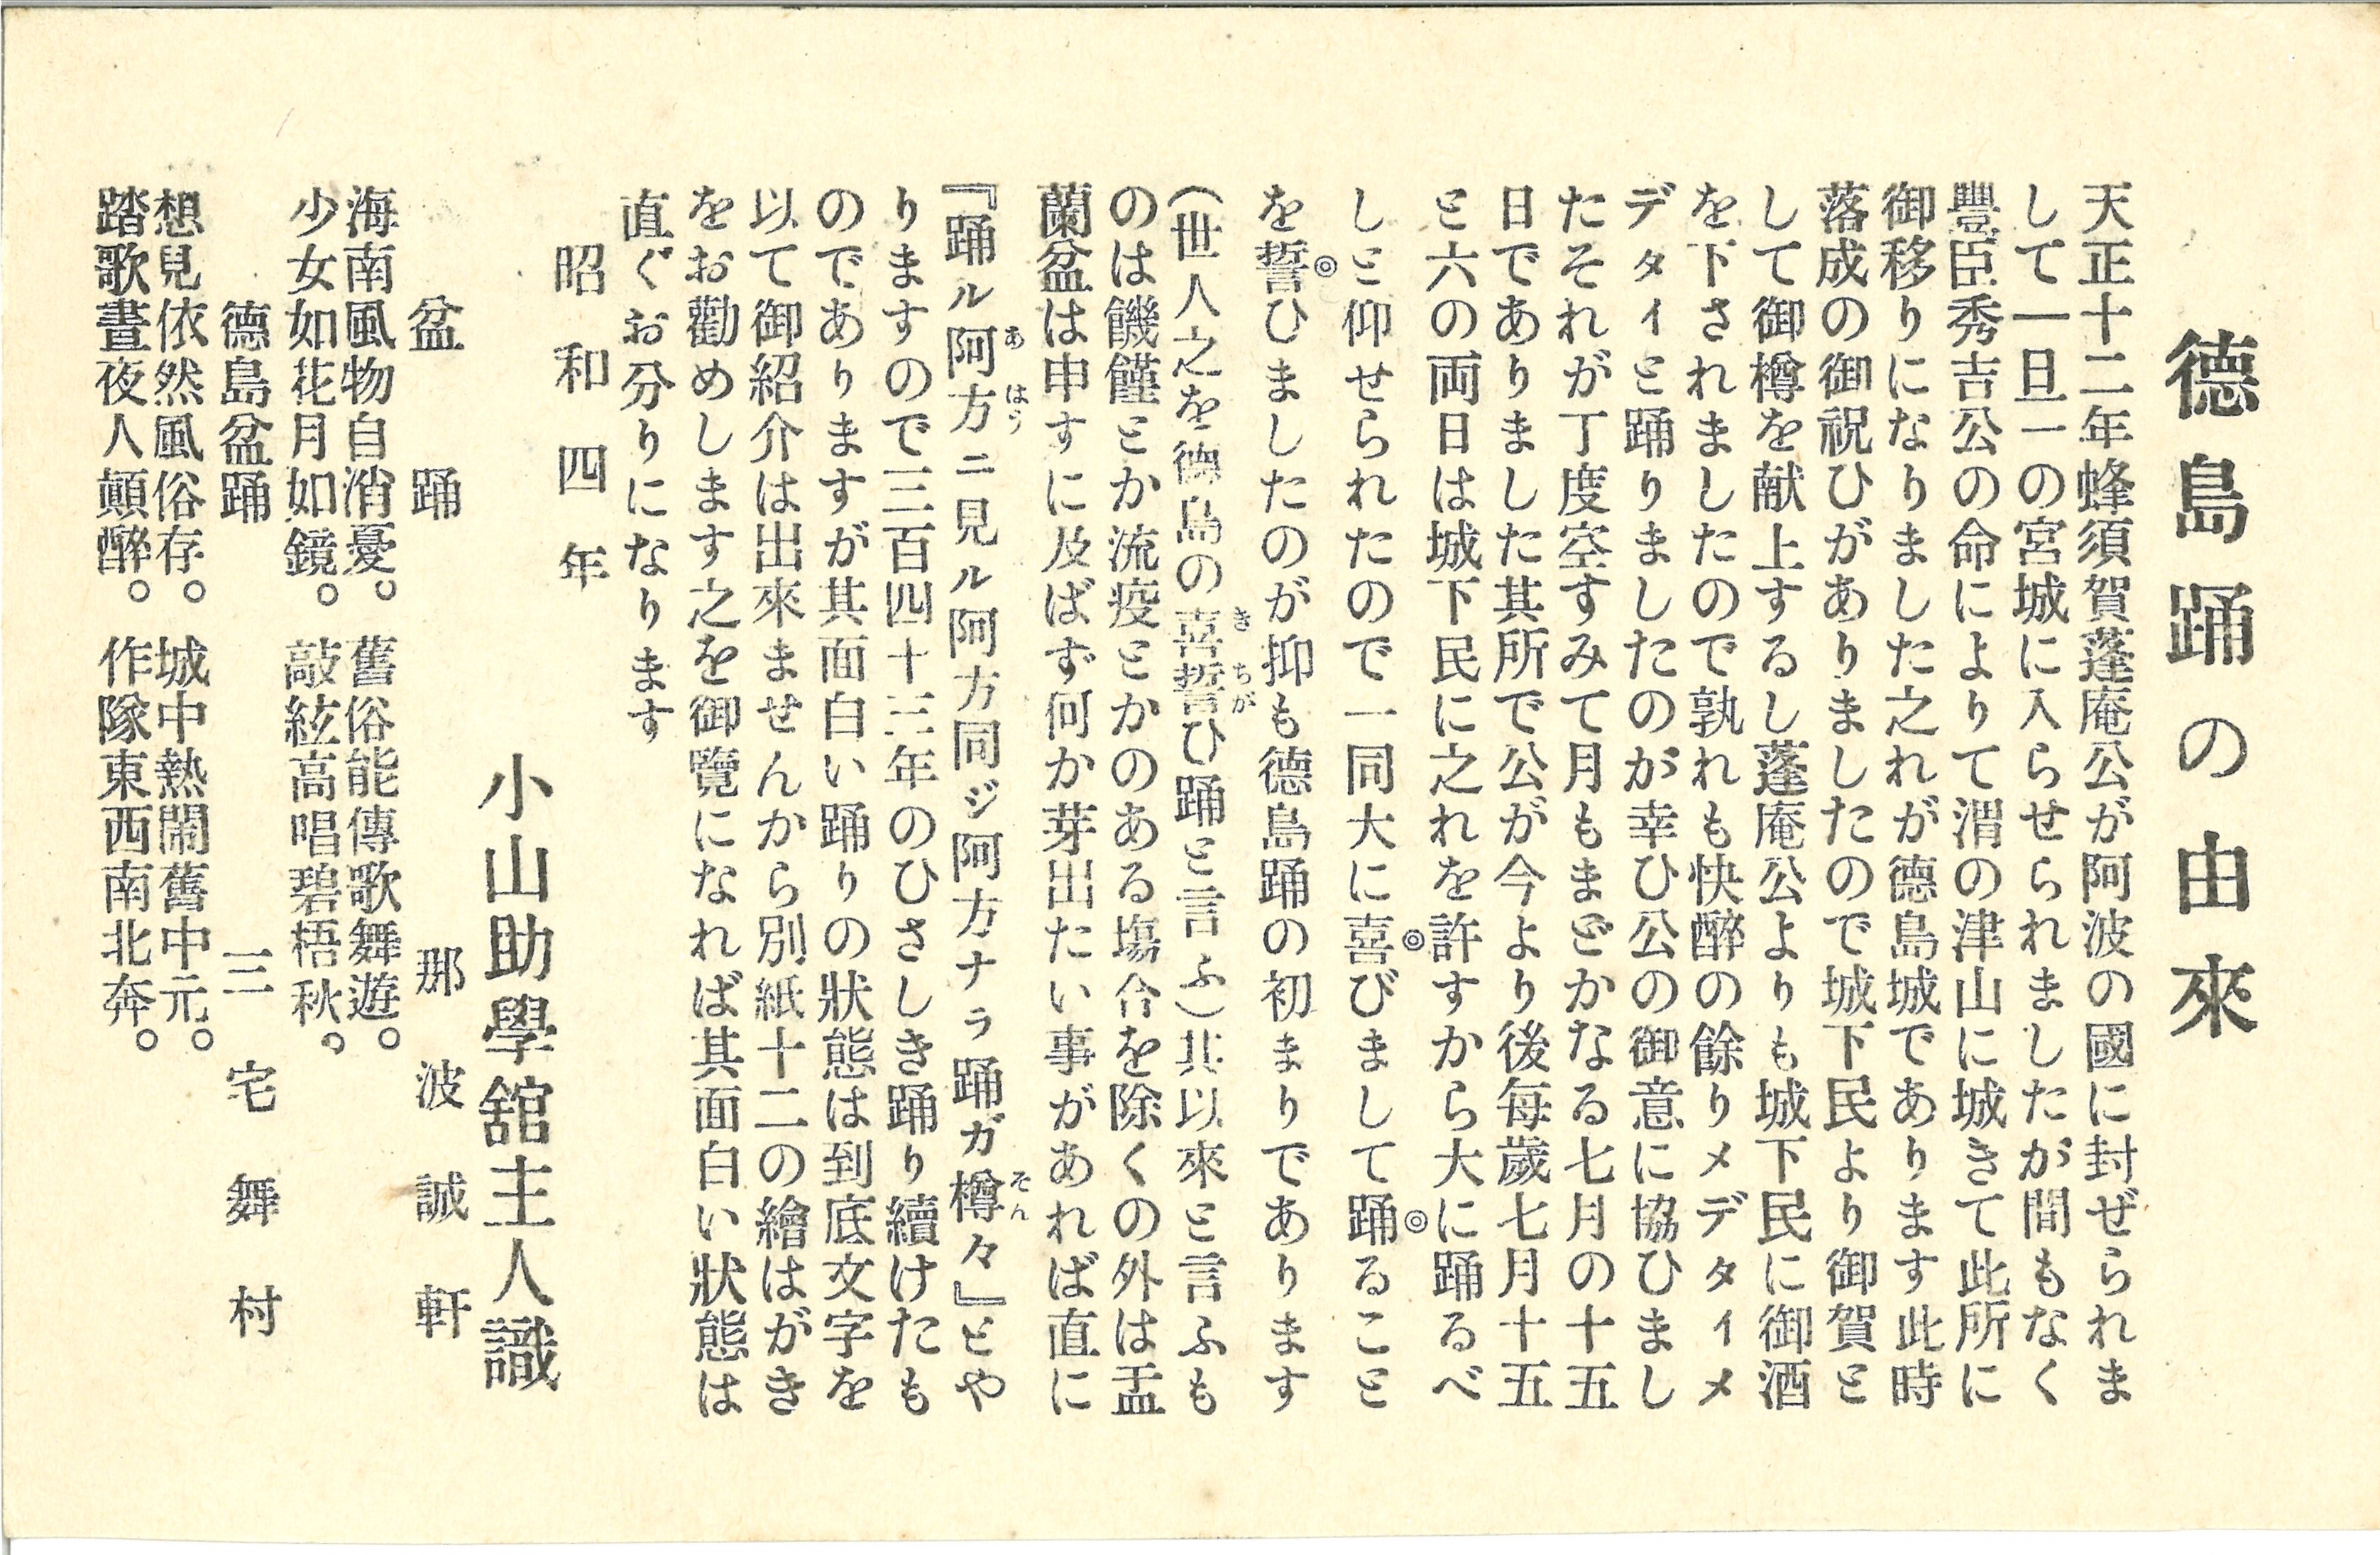 德島踊の由來
天正十二年蜂須賀蓬庵公が阿波の國に封ぜられま
して一旦一の宮城に入らせられましたが間もなく
豐臣秀吉公の命によりて渭の津山に城きて此所に
御移りになりました之れが德島城であります此時
落成の御祝ひがありましたので城下民より御賀と
して御樽を献上するし蓬庵公よりも城下民に御酒
を下されましたので孰れも快醉の餘りメデタイメ
デタイと踊りましたのが幸ひ公の御意に協ひまし
たそれが丁度空すみて月もまどかなる七月の十五
日でありました其所で公が今より後每歲七月十五
と六の両日は城下民に之れを許すから大に踊るべ
しと仰せられたので一同大に喜びまして踊ること
を誓ひましたのが抑も德島踊の初まりであります
(世人之を德島の喜誓ひ踊と言ふ)其以來と言ふも
のは饑饉とか流疫とかのある塲合を除くの外は盂
蘭盆は申すに及ばず何か芽出たい事があれば直に
『踊ル阿方ニ見ル阿方同ジ阿方ナラ踊ガ樽々』とや
りますので三百四十三年のひさしき踊り續けたも
のでありますが其面白い踊りの狀態は到底文字を
以て御紹介は出來ませんから別紙十二の繪はがき
をお勸めします之を御覽になれば其面白い狀態は
直ぐお分りになります
昭和四年
小山助學舘主人識
盆踊 那波誠軒
海南風物自消憂。舊俗能傳歌舞遊。
少女如花月如鏡。敲絃高唱碧梧秋。
德島盆踊 三宅舞村
想見依然風俗存。城中熱閙舊中元。
踏歌晝夜人顚醉。作隊東西南北奔。